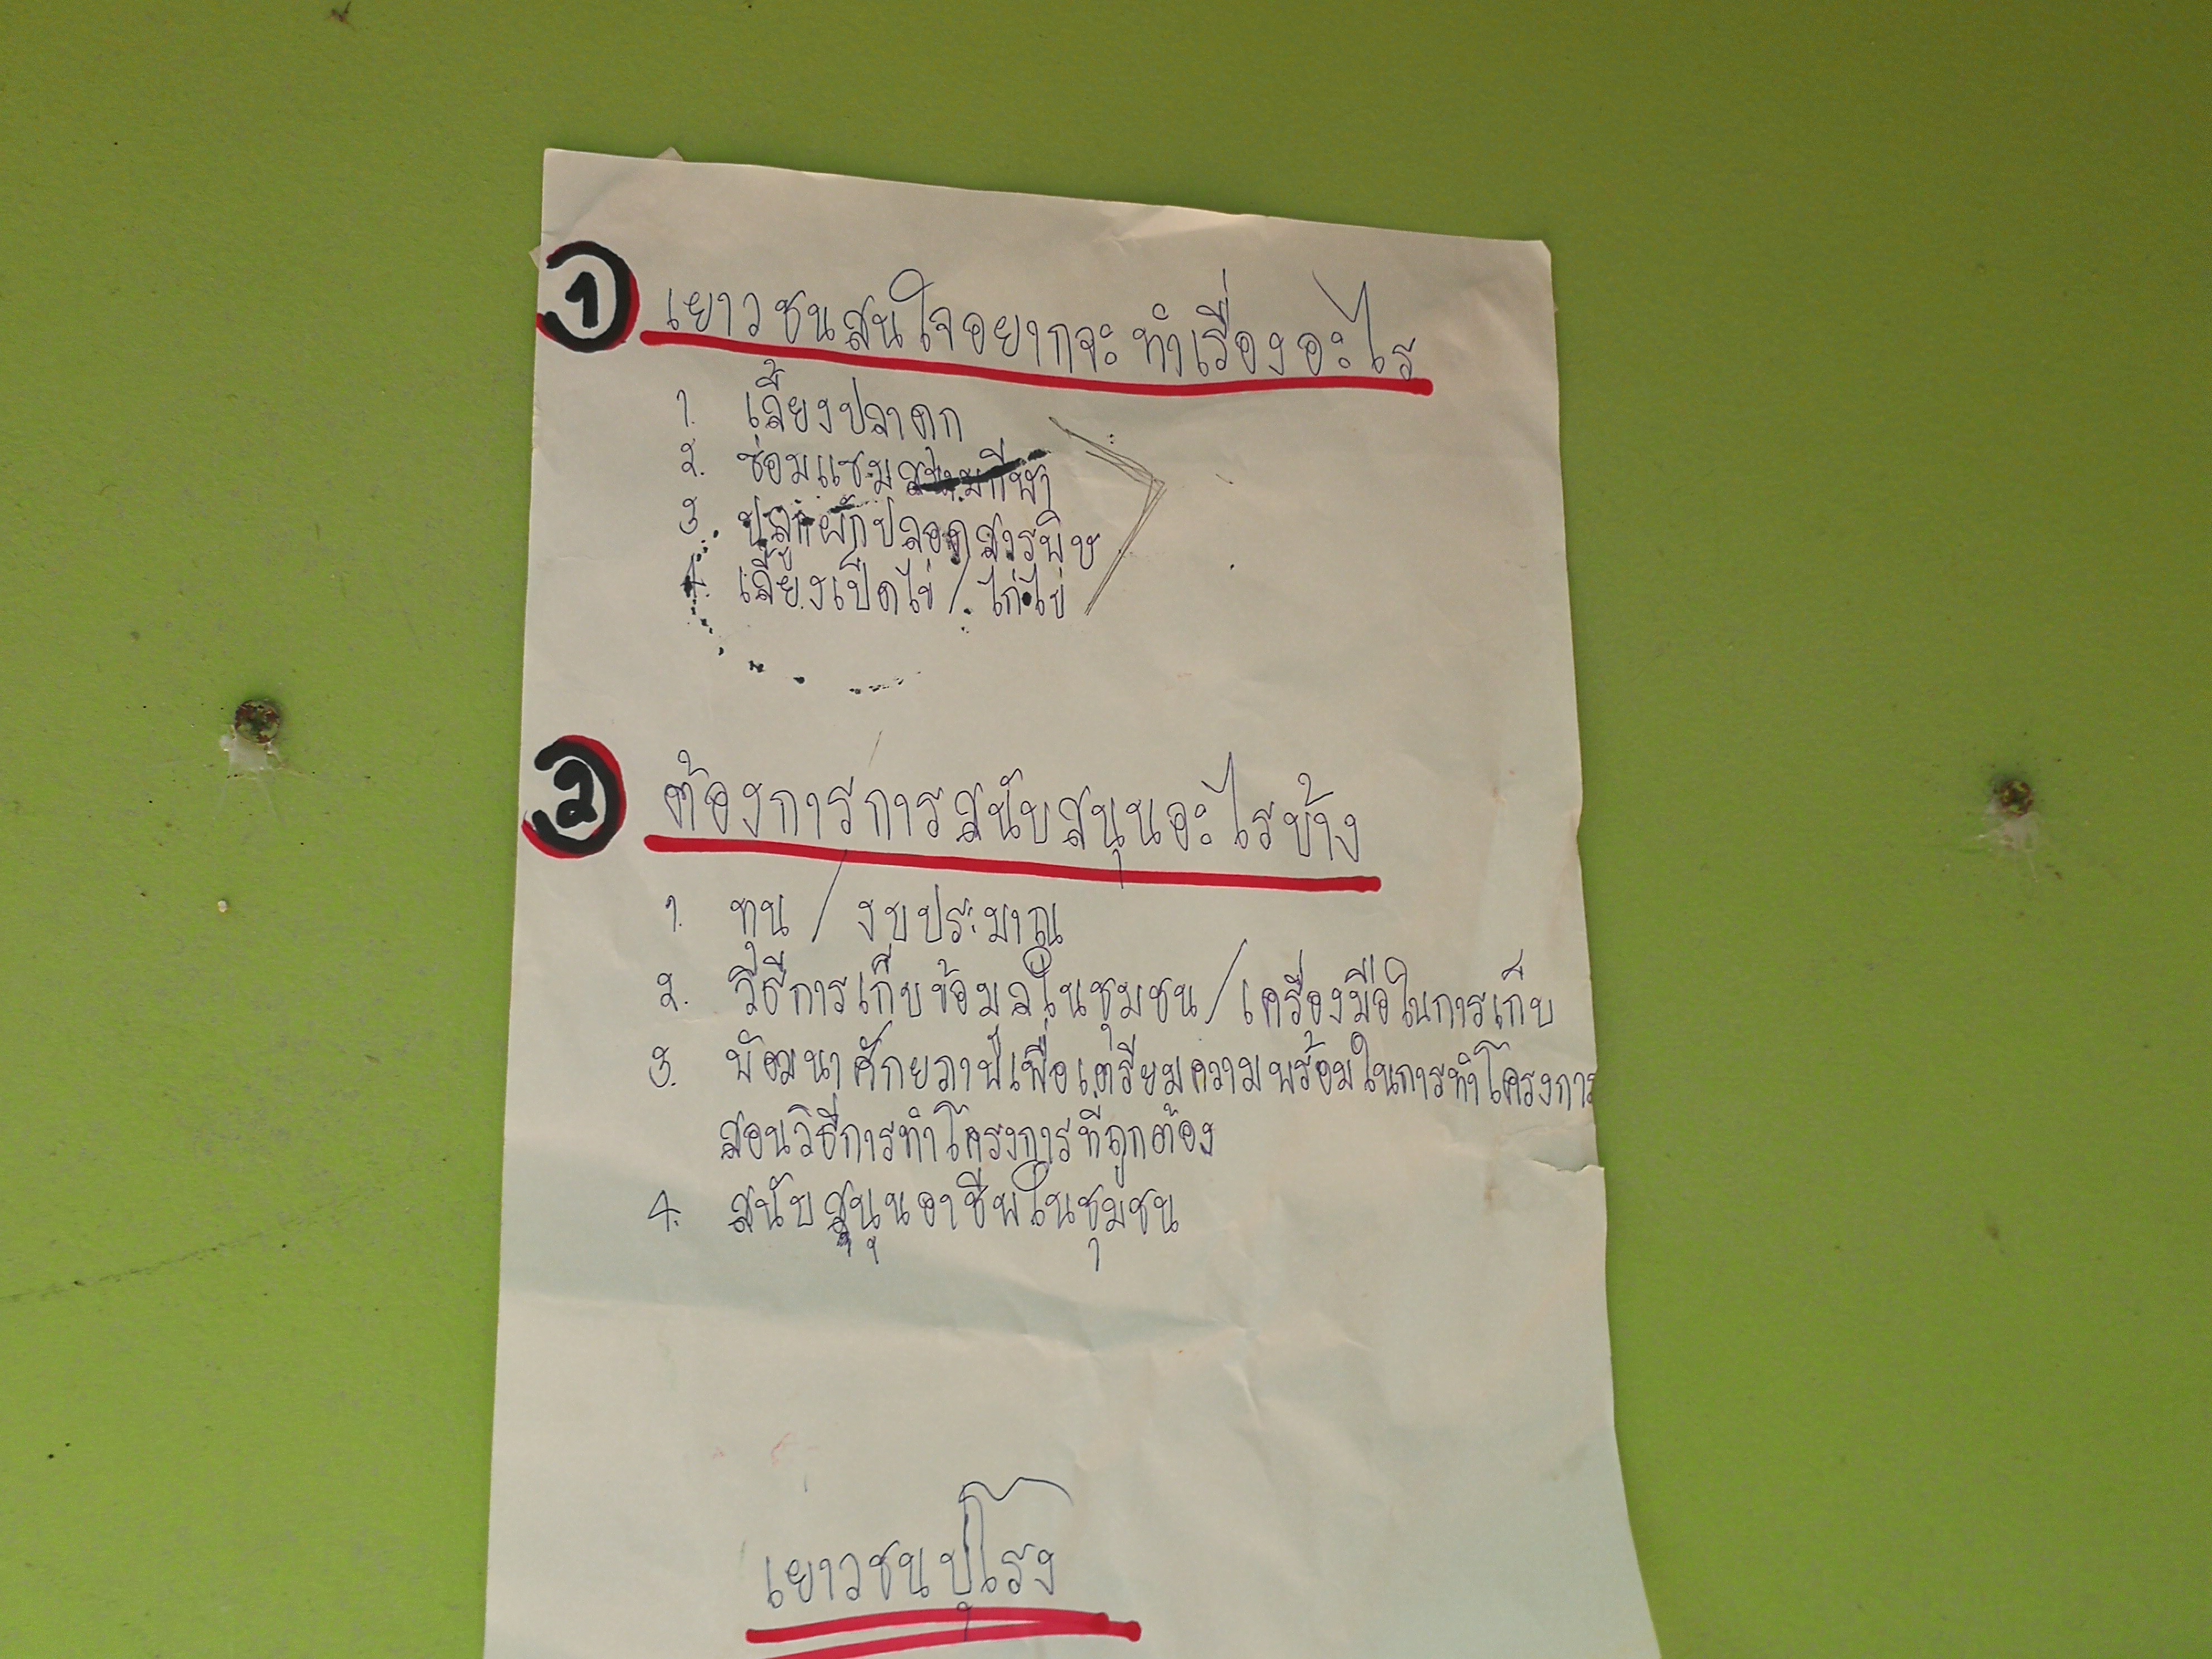 1 เยาวชนสนใจอยากจะทำเรื่องอะไร
1. เลี้ยงปลาดุก
2. ซ่อมแซมสนามกีฬา
3. ปลูกผักปลอดสารพิษ
4. เลี้ยงเป็ดไข่ / ไก่ไข่
2 ต้องการการสนับสนุนอะไรบ้าง
1. ทุน / งบประมาณ
2. วิธีการเก็บข้อมูลในชุมชน / เครื่องมือในการเก็บ
3. พัฒนาศักยภาพเพื่อเตรียมความพร้อมในการทำโครงการ
สอนวิธีการทำโครงการที่ถูกต้อง
4. สนับสนุนอาชีพในชุมชน
เยาวชนปูโรง